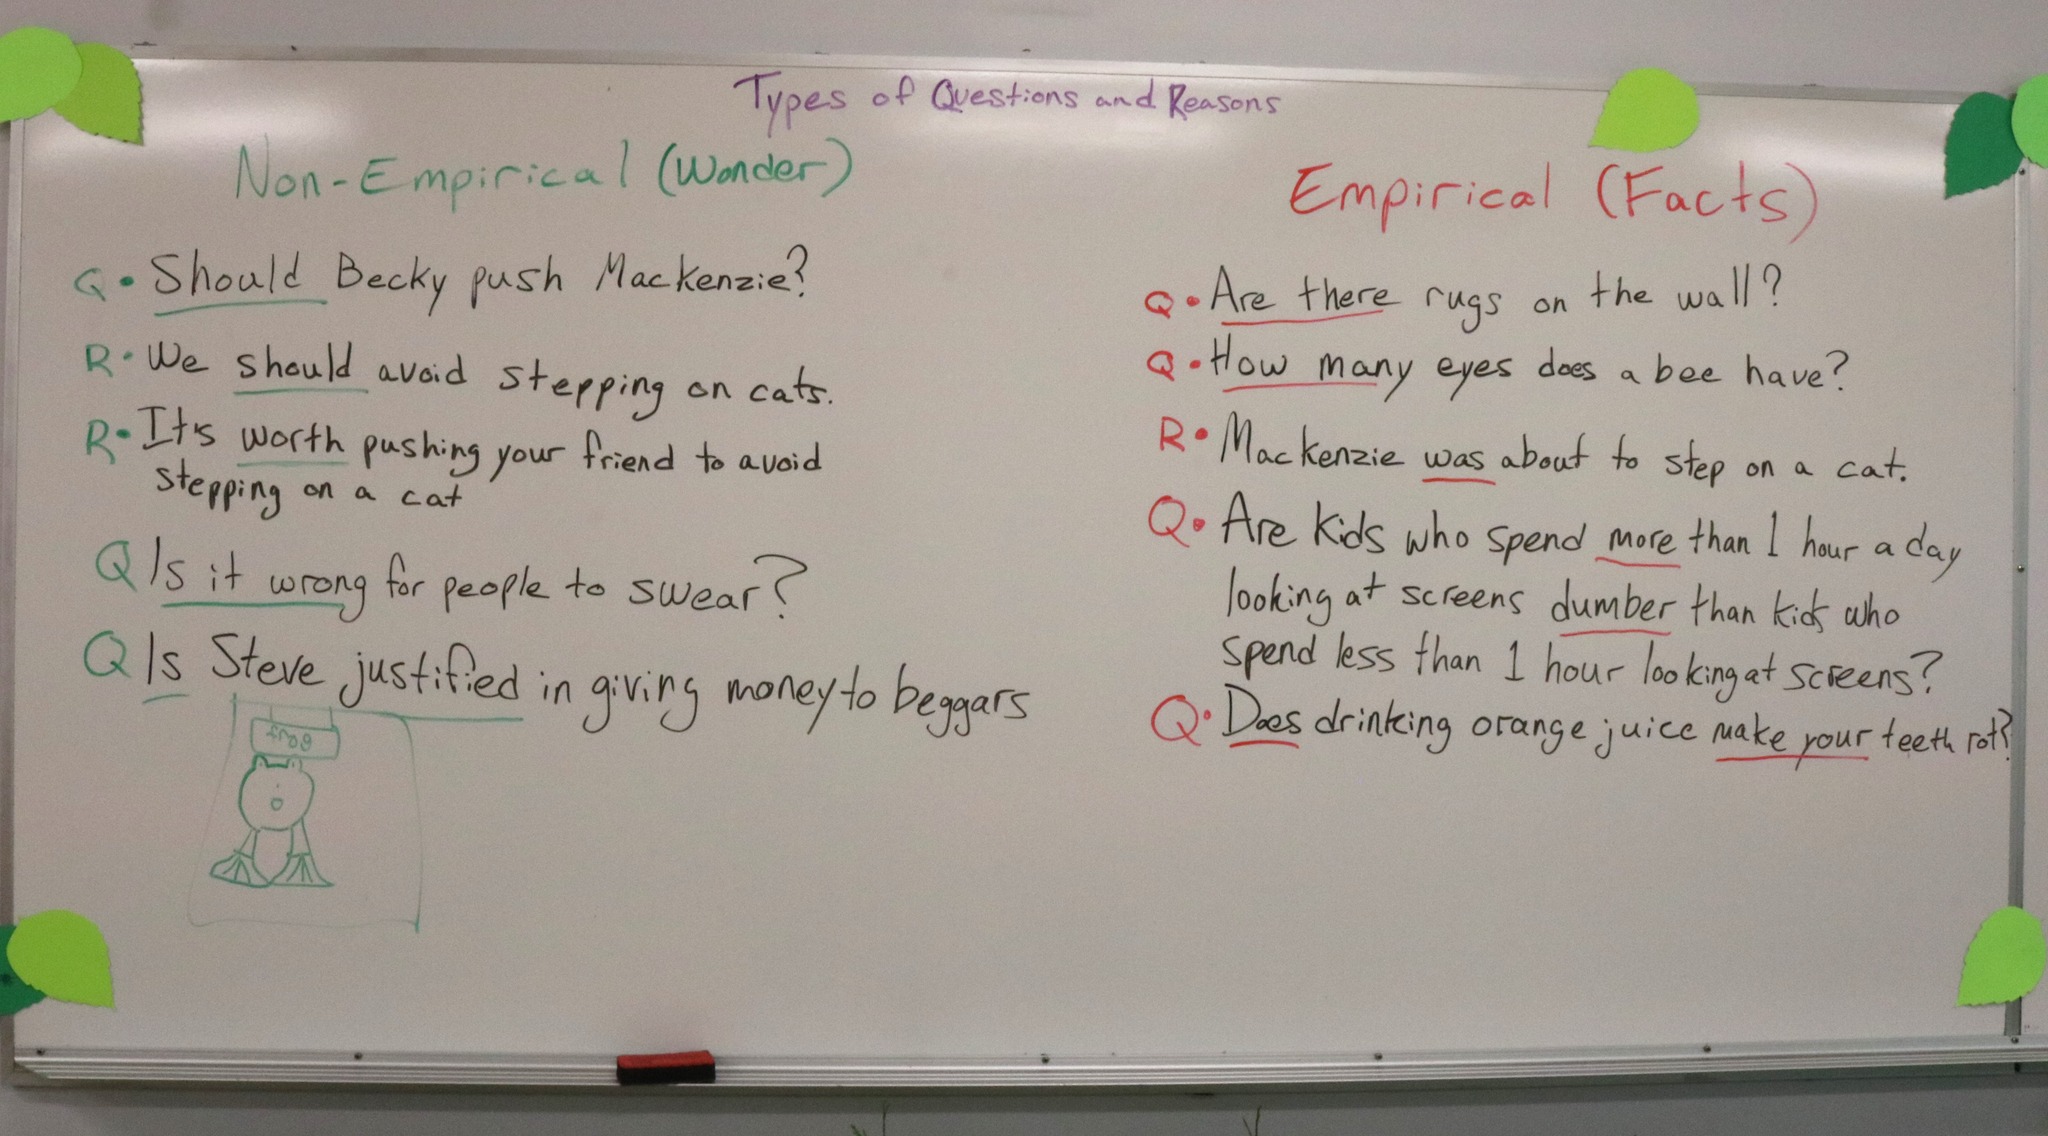 Types of Questions and Reasons
Non-Empirical (Wonder)
Q • Should Becky push Mackenzie?
R • We should avoid stepping on cats.
R • It's worth pushing your friend to avoid
stepping on a cat
Q Is it wrong for people to swear?
Q Is Steve justified in giving money to beggars
Empirical (Facts)
Q • Are there rugs on the wall?
Q • How many eyes does a bee have?
R • Mackenzie was about to step on a cat.
Q • Are kids who spend more than 1 hour a day
looking at screens dumber than kids who
spend less than 1 hour looking at screens?
Q • Does drinking orange juice make your teeth rot?